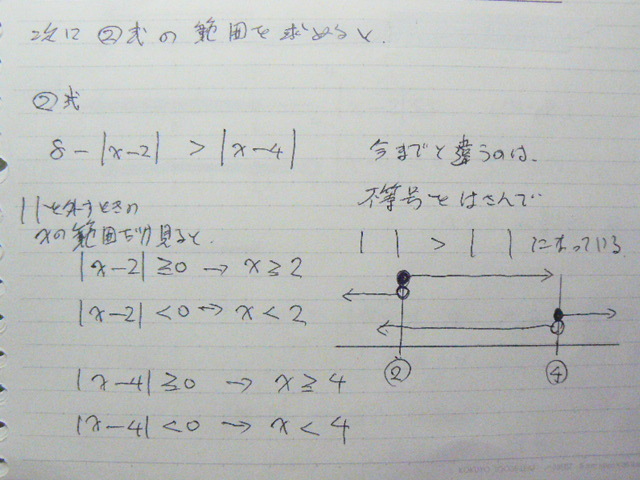 次に ②式の 範囲を 求めると.
②式
8 - |x-2| > |x-4|
今までと違うのは、
不等号をはさんで
| | > | | になっている
| | を外すときの
xの範囲だけ見ると.
|x-2| ≥ 0 → x ≥ 2
|x-2| < 0 → x < 2
② ④
|x-4| ≥ 0 → x ≥ 4
|x-4| < 0 → x < 4